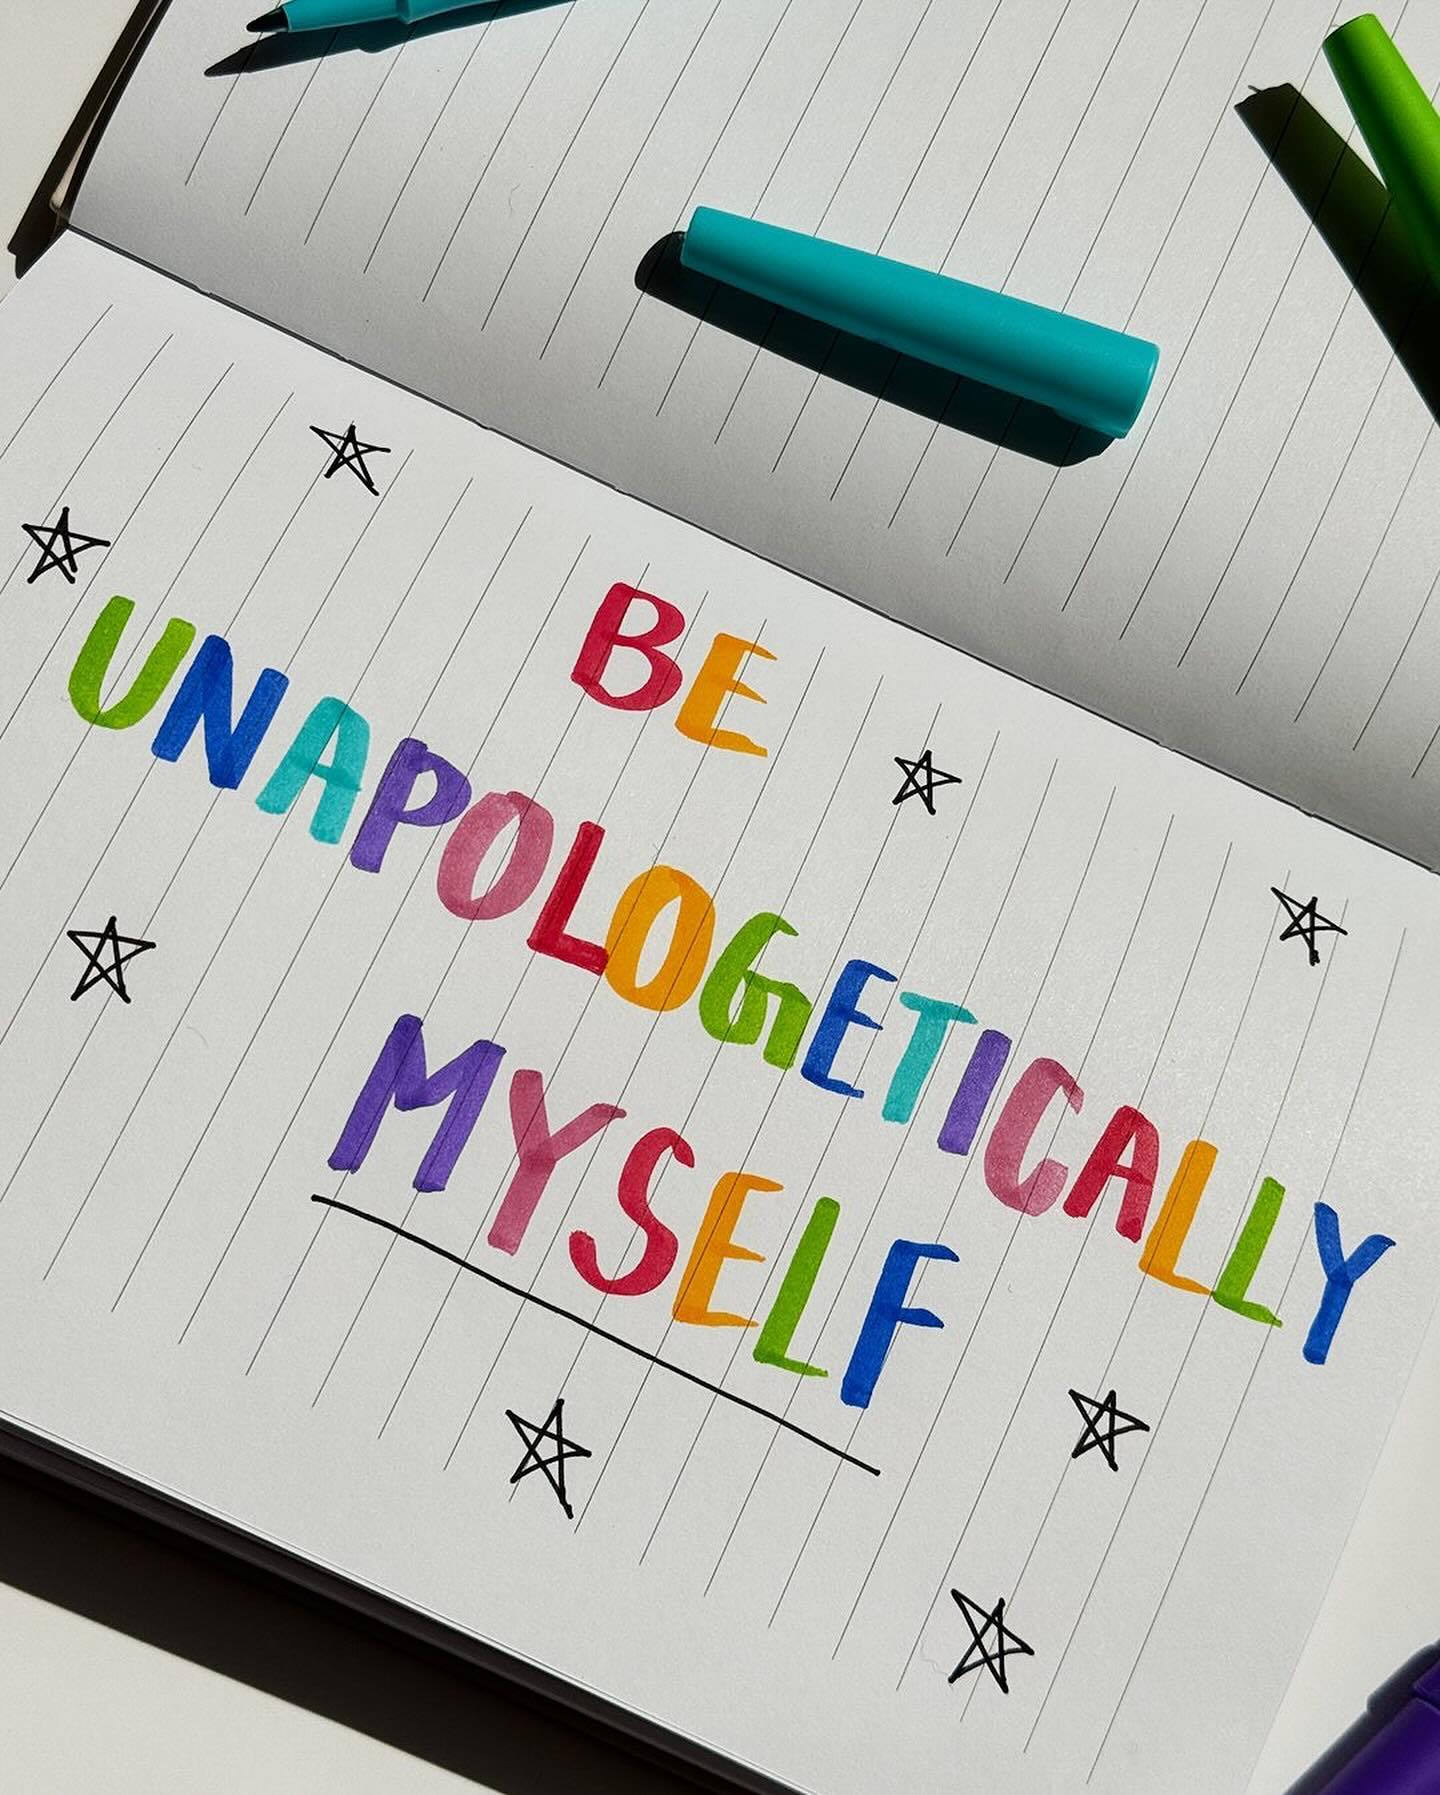 BE
UNAPOLOGETICALLY
MYSELF